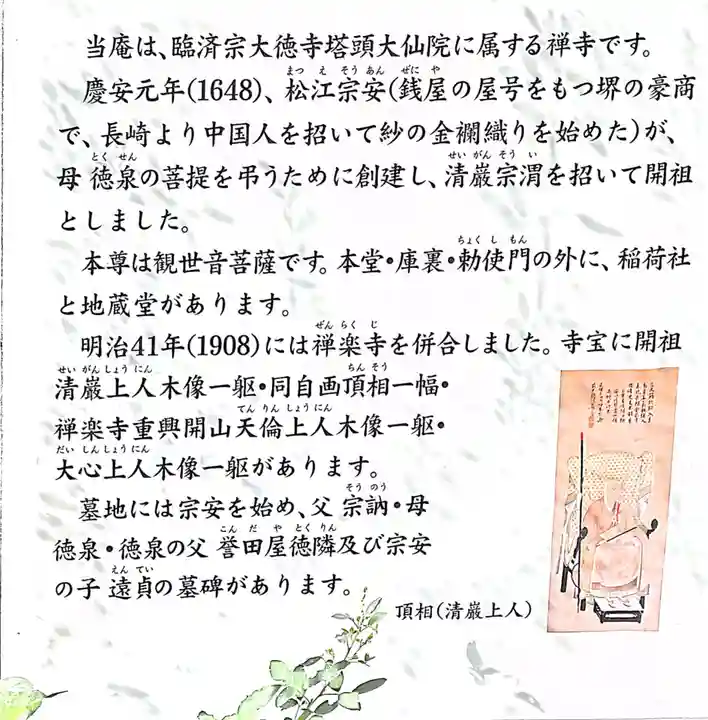 当庵は、臨済宗大徳寺塔頭大仙院に属する禅寺です。
慶安元年(1648)、松江宗安(銭屋の屋号をもつ堺の豪商
で、長崎より中国人を招いて紗の金襴織りを始めた)が、
母 徳泉の菩提を弔うために創建し、清巌宗渭を招いて開祖
としました。
本尊は観世音菩薩です。本堂・庫裏・勅使門の外に、稲荷社
と地蔵堂があります。
明治41年(1908)には禅楽寺を併合しました。寺宝に開祖
清巌上人木像一躯・同自画頂相一幅・
禅楽寺重興開山天倫上人木像一躯・
大心上人木像一躯があります。
墓地には宗安を始め、父 宗訥・母
徳泉・徳泉の父 誉田屋徳隣及び宗安
の子 遠貞の墓碑があります。
頂相(清巌上人)